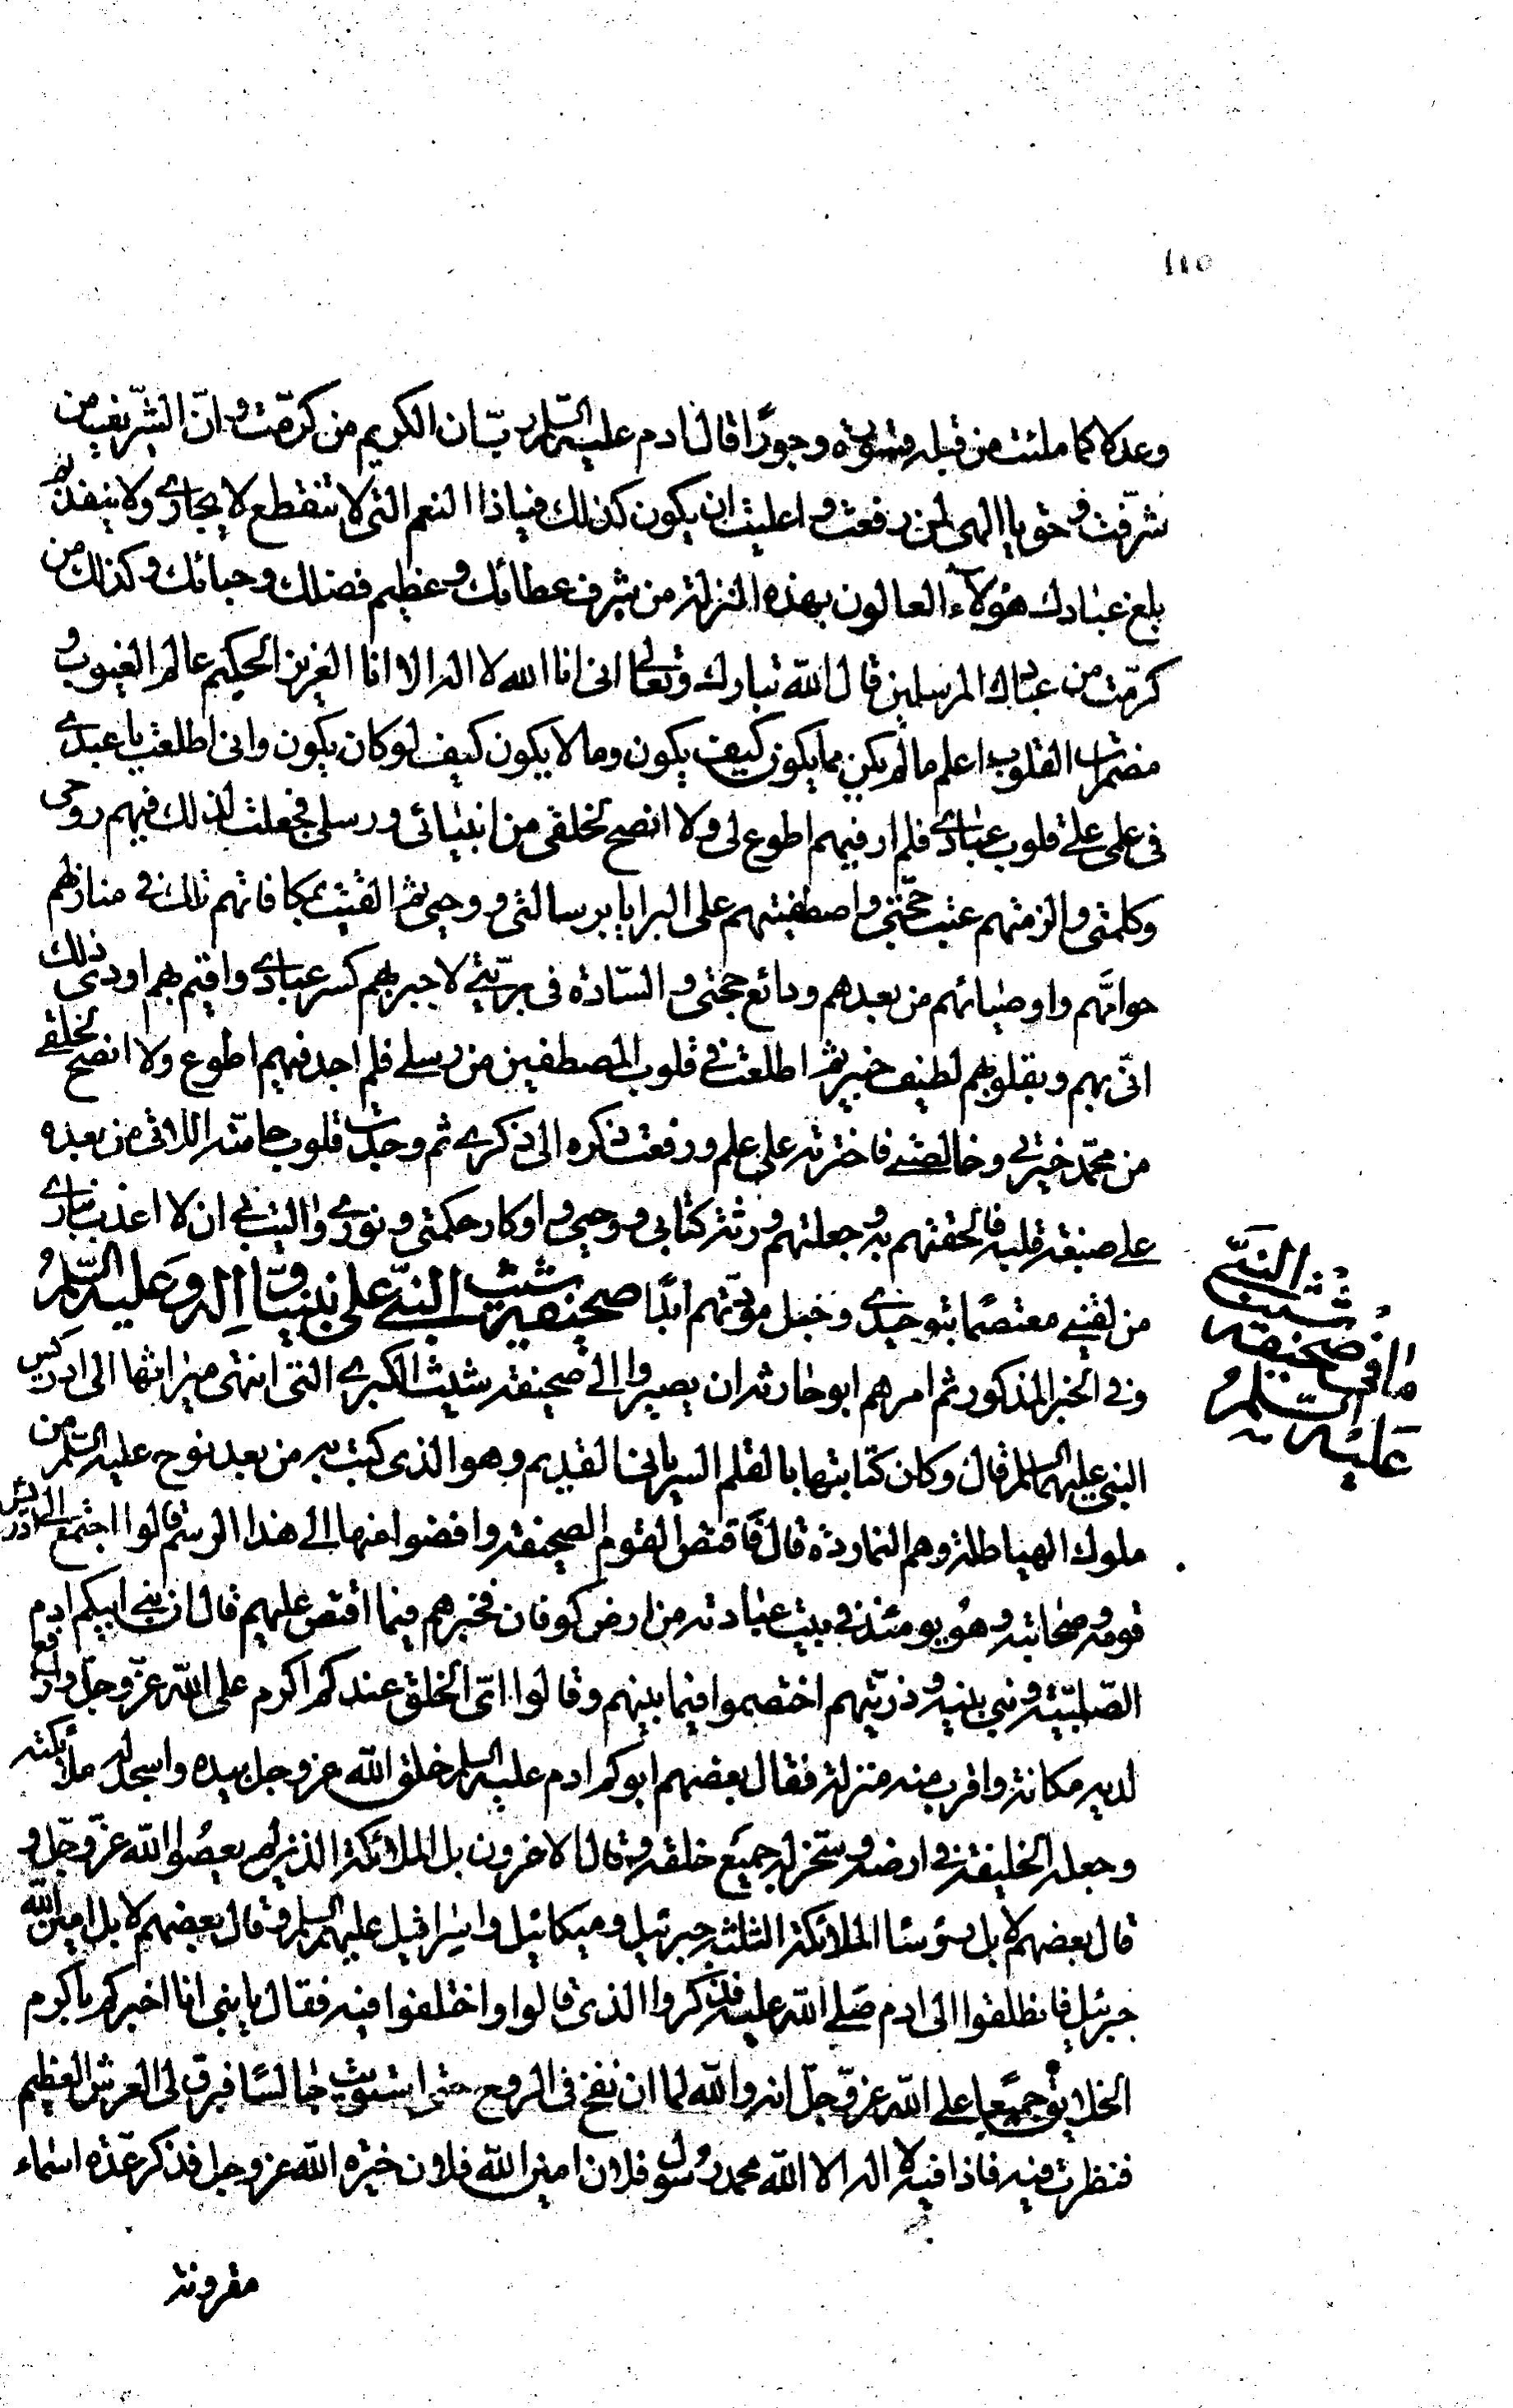 ١١٥
وعدلا كما ملئت من قبله قسوة وجورا قال ادم عليه السلم رب ان الكريم من كرمت وان الشريف من
شرفت وحق يا الهى لمن رفعت واعليت ان يكون كذلك فيا ذا النعم التى لا تنقطع لا يجازى ولا ينفد بم
بلغ عبادك هؤلاء العالون بهذه المنزلة من شرف عطائك وعظيم فضلك وحبائك وكذلك من
كرمت من عبادك المرسلين قال الله تبارك وتعالى انى انا الله لا اله الا انا العزيز الحكيم عالم الغيوب و
مضمرات القلوب اعلم ما لم يكن مما يكون كيف يكون وما لا يكون كيف لو كان يكون وانى اطلعت يا عبدى
فى علمى على قلوب عبادى فلم ار فيهم اطوع لى ولا انصح لخلقى من انبيائى ورسلى فجعلت لذلك فيهم روحى
وكلمتى والزمتهم عبء حجتى واصطفيتهم على البرايا برسالتى ووحيى ثم القيت بمكافاتهم تلك فى منازلهم
حوامهم واوصيائهم من بعدهم ودائع حجتى والسادة فى بريتى لاجبر بهم كسر عبادى واقيم بهم اودهم ذلك
انى بهم وبقلوبهم لطيف خبير ثم اطلعت فى قلوب المصطفين من رسلى فلم اجد فيهم اطوع ولا انصح لخلقى
من محمد خيرتى وخالصتى فاخترته على علم ورفعت ذكره الى ذكرى ثم وجدت قلوب حامته اللاتى من بعده
على صبغة قلبه فالحقتهم به وجعلتهم ورثة كتابى ووحيى واوكار حكمتى ونورى واليت بى ان لا اعذب بنارى
من لقينى معتصما بتوحيدى وحبل مودتهم ابدا صحيفة شيث النبى على نبينا واله وعليه السلم
وفى الخبر المذكور ثم امرهم ابو حارثه ان يصيروا الى صحيفة شيث الكبرى التى انتهى ميراثها الى ادريس
النبى عليهما السلم قال وكان كتابتها بالقلم السريانى القديم وهو الذى كتب به من بعد نوح عليه السلم من
ملوك الهياطلة وهم النماردة قال فاقتص القوم الصحيفة وافضوا منها الى هذا الرسم قالوا اجتمع الى ادريس
قومه وصحابته وهو يومئذ فى بيت عبادته من ارض كوفان فخبرهم فيما اقتص عليهم قال ان بنى ابيكم ادم
الصلبية وبنى بنيه وذريتهم اختصموا فيما بينهم وقالوا اى الخلق عندكم اكرم على الله عز وجل وارفع
لديه مكانة واقرب منه منزلة فقال بعضهم ابوكم ادم عليه السلم خلق الله عز وجل بيده واسجد له ملائكته
وجعله الخليفة فى ارضه وسخر له جميع خلقه وقال الاخرون بل الملائكة الذين لم يعصوا الله عز وجل و
قال بعضهم لا بل رؤسا الملائكة الثلثة جبرئيل وميكائيل واسرافيل عليهم السلم وقال بعضهم لا بل امين الله
جبرئيل فانطلقوا الى ادم صلى الله عليه فذكروا الذى قالوا واختلفوا فيه فقال يا بنى انا اخبركم باكرم
الخلائق جميعا على الله عز وجل انه والله لما ان نفخ فى الروح حتى استويت جالسا فبرق لى العرش العظيم
فنظرت فيه فاذا فيه لا اله الا الله محمد رسول فلان امين الله فلان خيرة الله عز وجل فذكر عدة اسماء
مقرونة
ما فى صحيفة
شيث النبى
عليه السلم